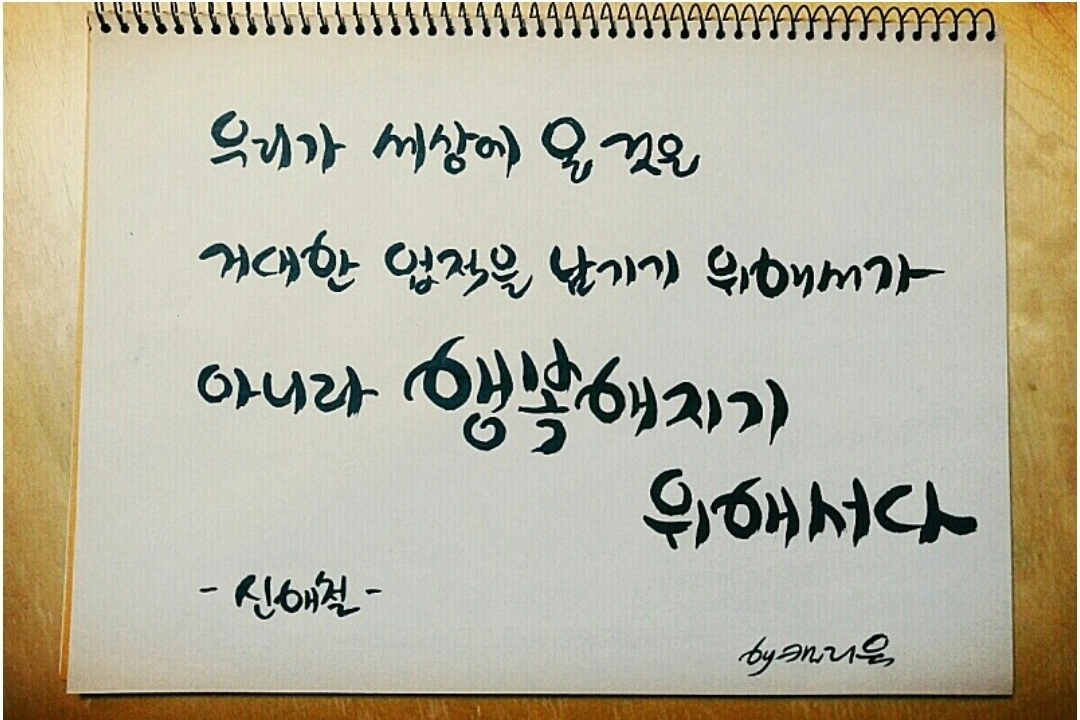 우리가 세상에 온 것은
거대한 업적을 남기기 위해서가
아니라 행복해지기
위해서다
- 신해철 -
by